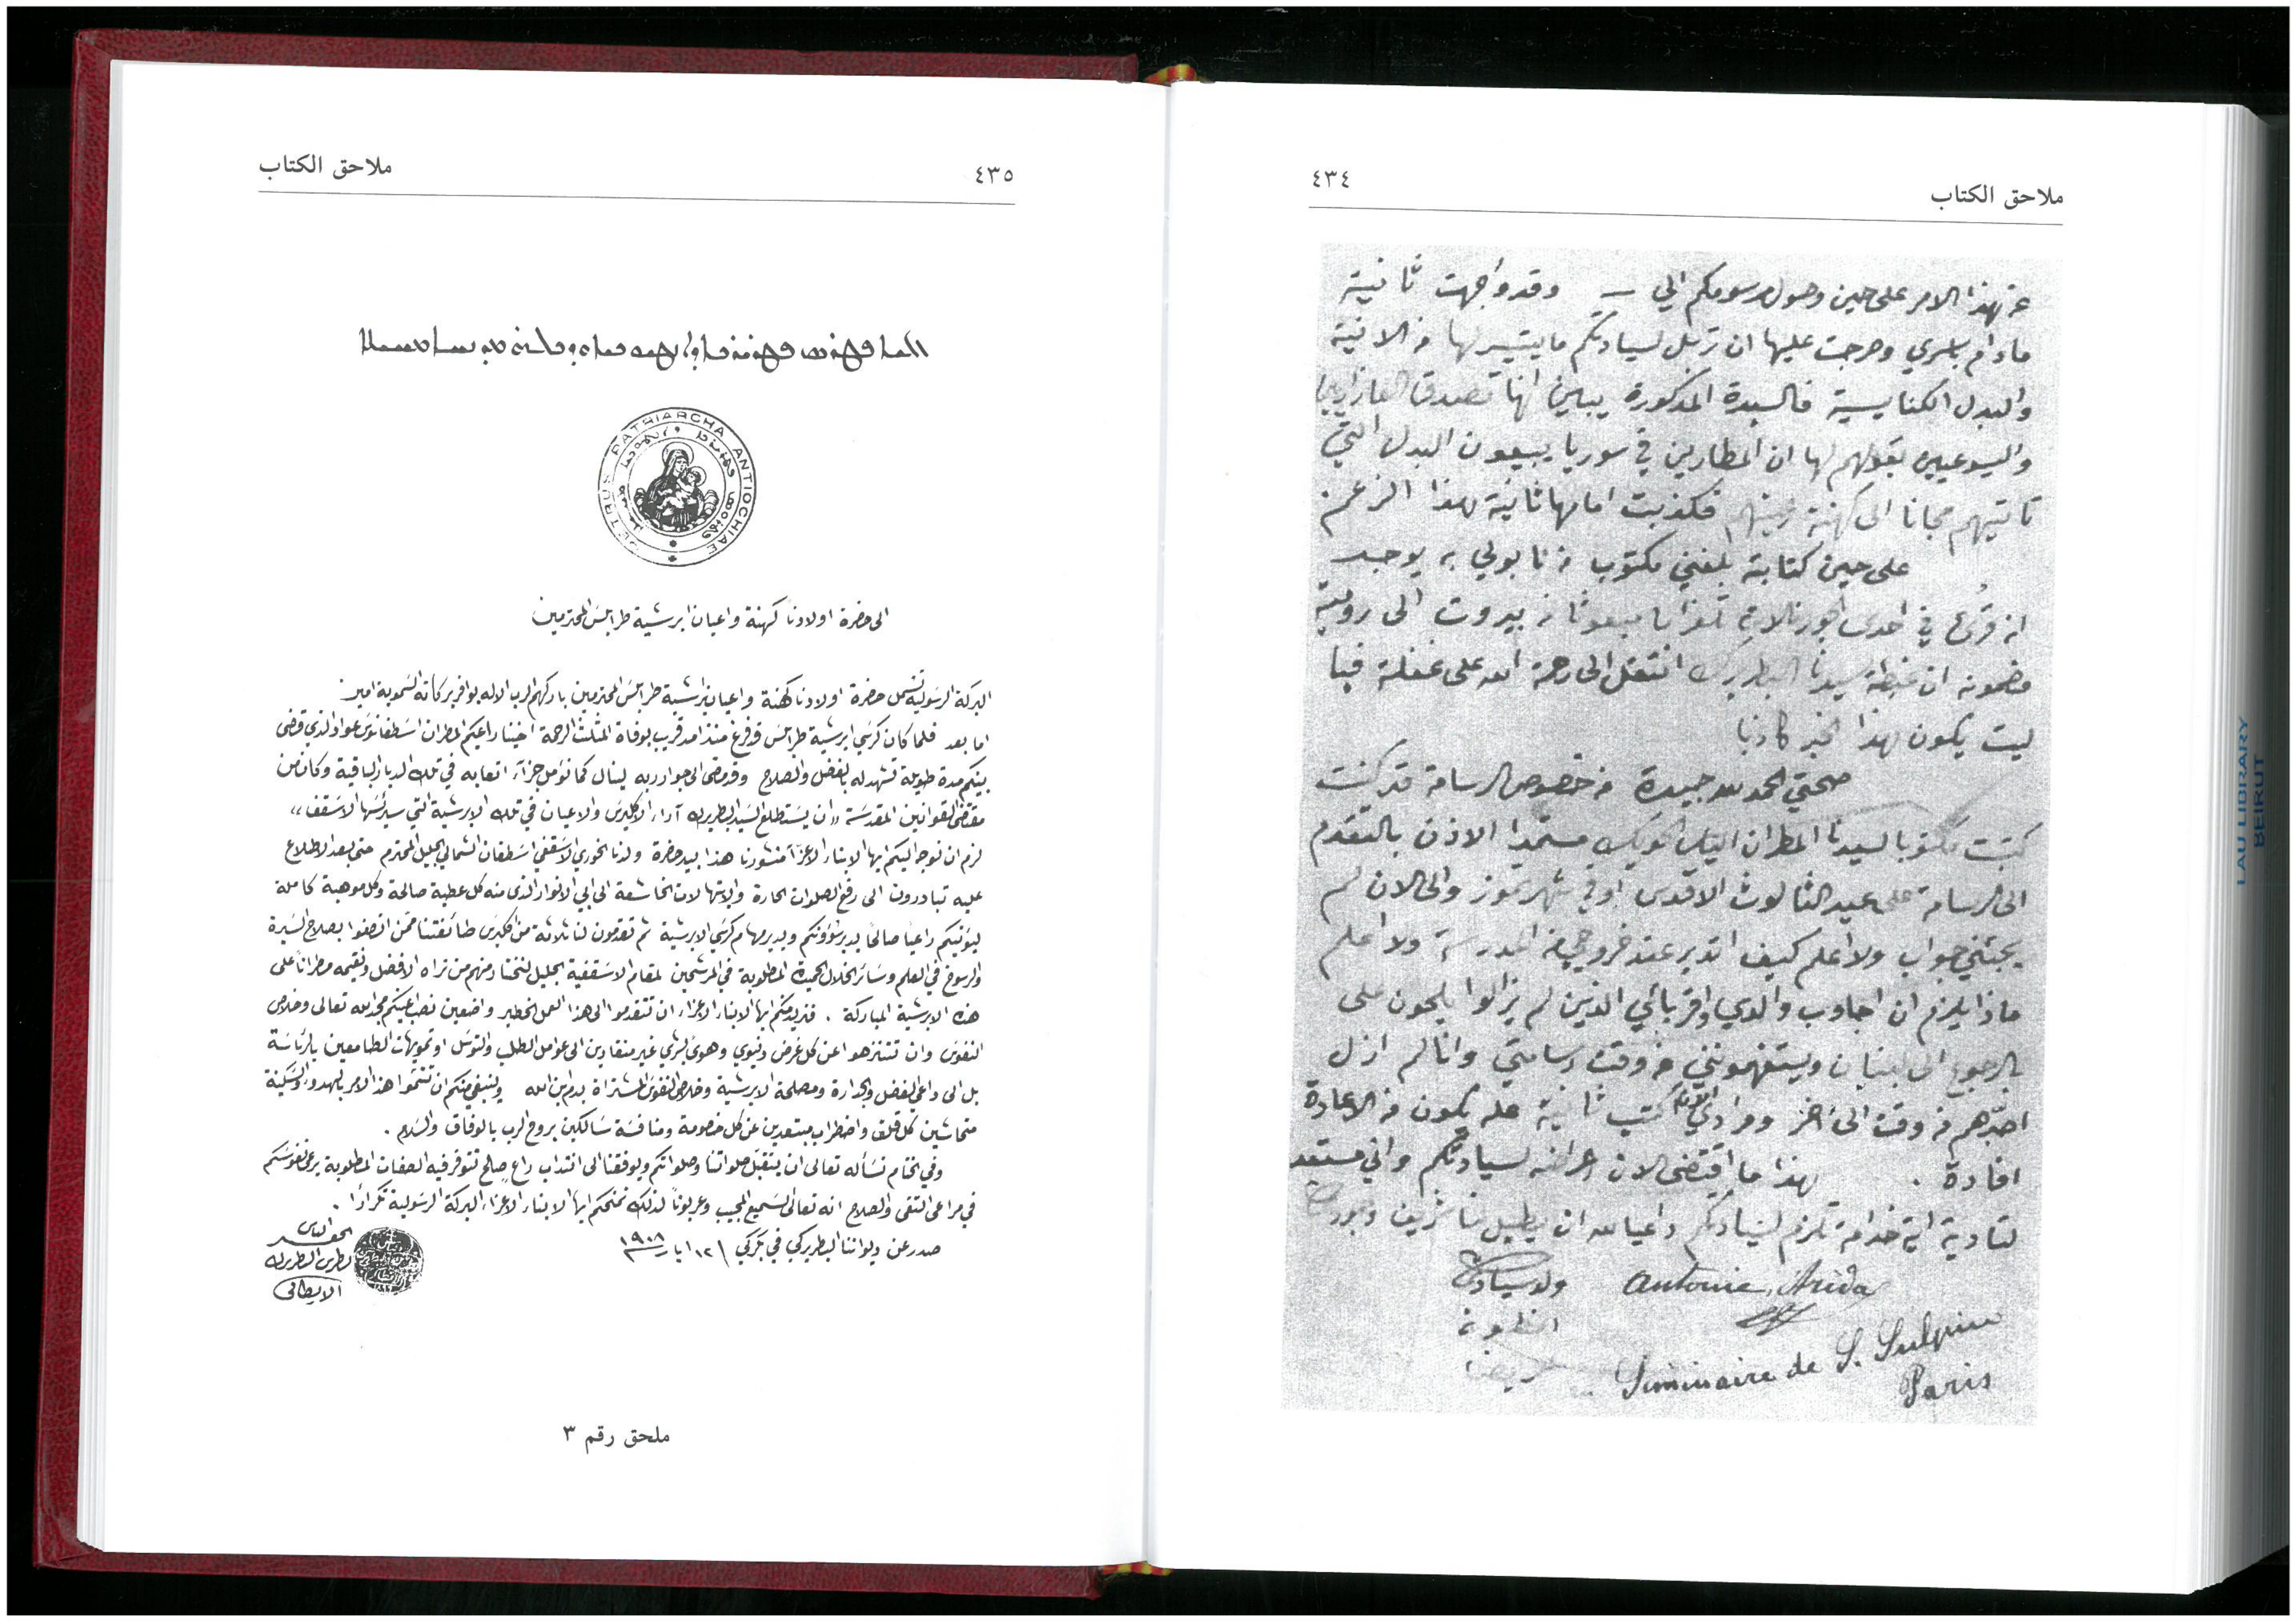 ملاحق الكتاب
٤٣٤
عن هذا الامر على حين وصول مرسومكم الي – وقد واجهت ثانية
مادام بلسري وحرجت عليها ان ترسل لسيادتكم ما يتيسر لها من الانية
والبدل الكنايسية فالسيدة المذكورة يباين انها تصدق العازاريين
واليسوعيين بقولهم لها ان المطارين في سوريا يبيعون البدل التي
تاتيهم مجانا الى كهنة فكذبت امامها ثانية هذا الزعم
على حين كتابته بلغني مكتوب من نابولي به يوجد
انه قرئ في احدى الجورنالات تلغرافا مبعوثا من بيروت الى رومية
مضمونه ان غبطة سيدنا البطريرك انتقل الى رحمة الله على غفلة فيا
ليت يكون هذا الخبر كاذبا
صحتي الحمد لله جيدة من خصوص الرسامة قد كنت
كتبت مكتوبا لسيدنا المطران الياس الحويك مستمدا الاذن بالتقدم
الى الرسامة على عيد الثالوث الاقدس او في شهر تموز والى الان لم
يجئني جواب ولا اعلم كيف اتدبر عند خروجي من المدرسة ولا اعلم
ماذا يلزم ان اجاوب والدي واقربائي الذين لم يزالوا يلحون علي
بالرجوع الى لبنان ويستفهمونني عن وقت رسامتي وانا لم ازل
اصبرهم من وقت الى اخر ومرادي الان اكتب ثانية عله يكون من الاعادة
افادة . هذا ما اقتضى الان اعراضه لسيادتكم واني مستعد
لتادية اية خدامة تلزم لسيادتكم داعيا لله ان يطيل لنا شريف وجودكم
ولد سيادتكم
Antonie Arida
انطون
عريضه
Séminaire de S. Sulpice
Paris
٤٣٥
ملاحق الكتاب
PETRUS PATRIARCHA ANTIOCHIAE
الى حضرة اولادنا كهنة واعيان ابرشية طرابلس المحترمين
البركة الرسولية تشمل حضرة اولادنا كهنة واعيان ابرشية طرابلس المحترمين باركهم الرب الاله بوافر بركاته السموية امين
اما بعد فلما كان كرسي ابرشية طرابلس قد فرغ منذ امد قريب بوفاة المثلث الرحمة اخينا راعيكم المطران اسطفانوس عواد الذي قضى
بينكم مدة طويلة تشهد له بالفضل والصلاح وقد مضى الى جوار ربه لينال كما نؤمل جزآء اتعابه في تلك الديار الباقية وكان من
مقتضى القوانين المقدسة «ان يستطلع السيد البطريرك آراء الاكليرس والاعيان في تلك الابرشية التي سيرئسها الاسقف»
لزم ان نوجه اليكم ايها الابناء الاعزآء منشورنا هذا بيد حضرة ولدنا الخوري الاسقفي اسطفان الشمالي الجليل المحترم حتى بعد الاطلاع
عليه تبادرون الى رفع الصلوات الحارة والابتهالات الخاشعة الى ابي الانوار الذي منه كل عطية صالحة وكل موهبة كاملة
ليؤتيكم راعيا صالحا يدبر شؤونكم ويدير مهام كرسي الابرشية ثم تقدمون لنا ثلاثة من اكليرس طائفتنا ممن اتصفوا بصلاح السيرة
والرسوخ في العلم وسائر الخلال الحميدة المطلوبة في المرشحين لمقام الاسقفية الجليل لنختار منهم من نراه الافضل ونقيمه مطرانا على
هذه الابرشية المباركة . فنريد منكم ايها الابناء الاعزاء ان تتقدموا الى هذا العمل الخطير واضعين نصب اعينكم مجد الله تعالى وخلاص
النفوس وان تتنزهوا عن كل غرض دنيوي وهوى بشري غير منقادين الى عوامل الطلب والتوسل او تمويهات الطامعين بالرئاسة
بل الى داعي الفضل والجدارة ومصلحة الابرشية وخلاص النفوس المشتراة بدم ابن الله وينبغي منكم ان تتمموا هذا الامر بالهدو والسكينة
متحاشين كل قلق واضطراب مبتعدين عن كل خصومة ومنافسة سالكين بروح الرب بالوفاق والسلام .
وفي الختام نسأله تعالى ان يتقبل صلواتنا وصلواتكم ويوفقنا الى انتداب راعٍ صالح تتوفر فيه الصفات المطلوبة يرعى نفوسكم
في مراعي التقى والصلاح انه تعالى السميع المجيب وعربونا لذلك نمنحكم ايها الابناء الاعزاء البركة الرسولية تكرارًا .
صدر عن ديواننا البطريركي في بكركي ١٢ ايار سنة ١٩٠٨
الحقير الياس
بطرس البطريرك
الانطاكي
ملحق رقم ٣
LAU LIBRARY
BEIRUT